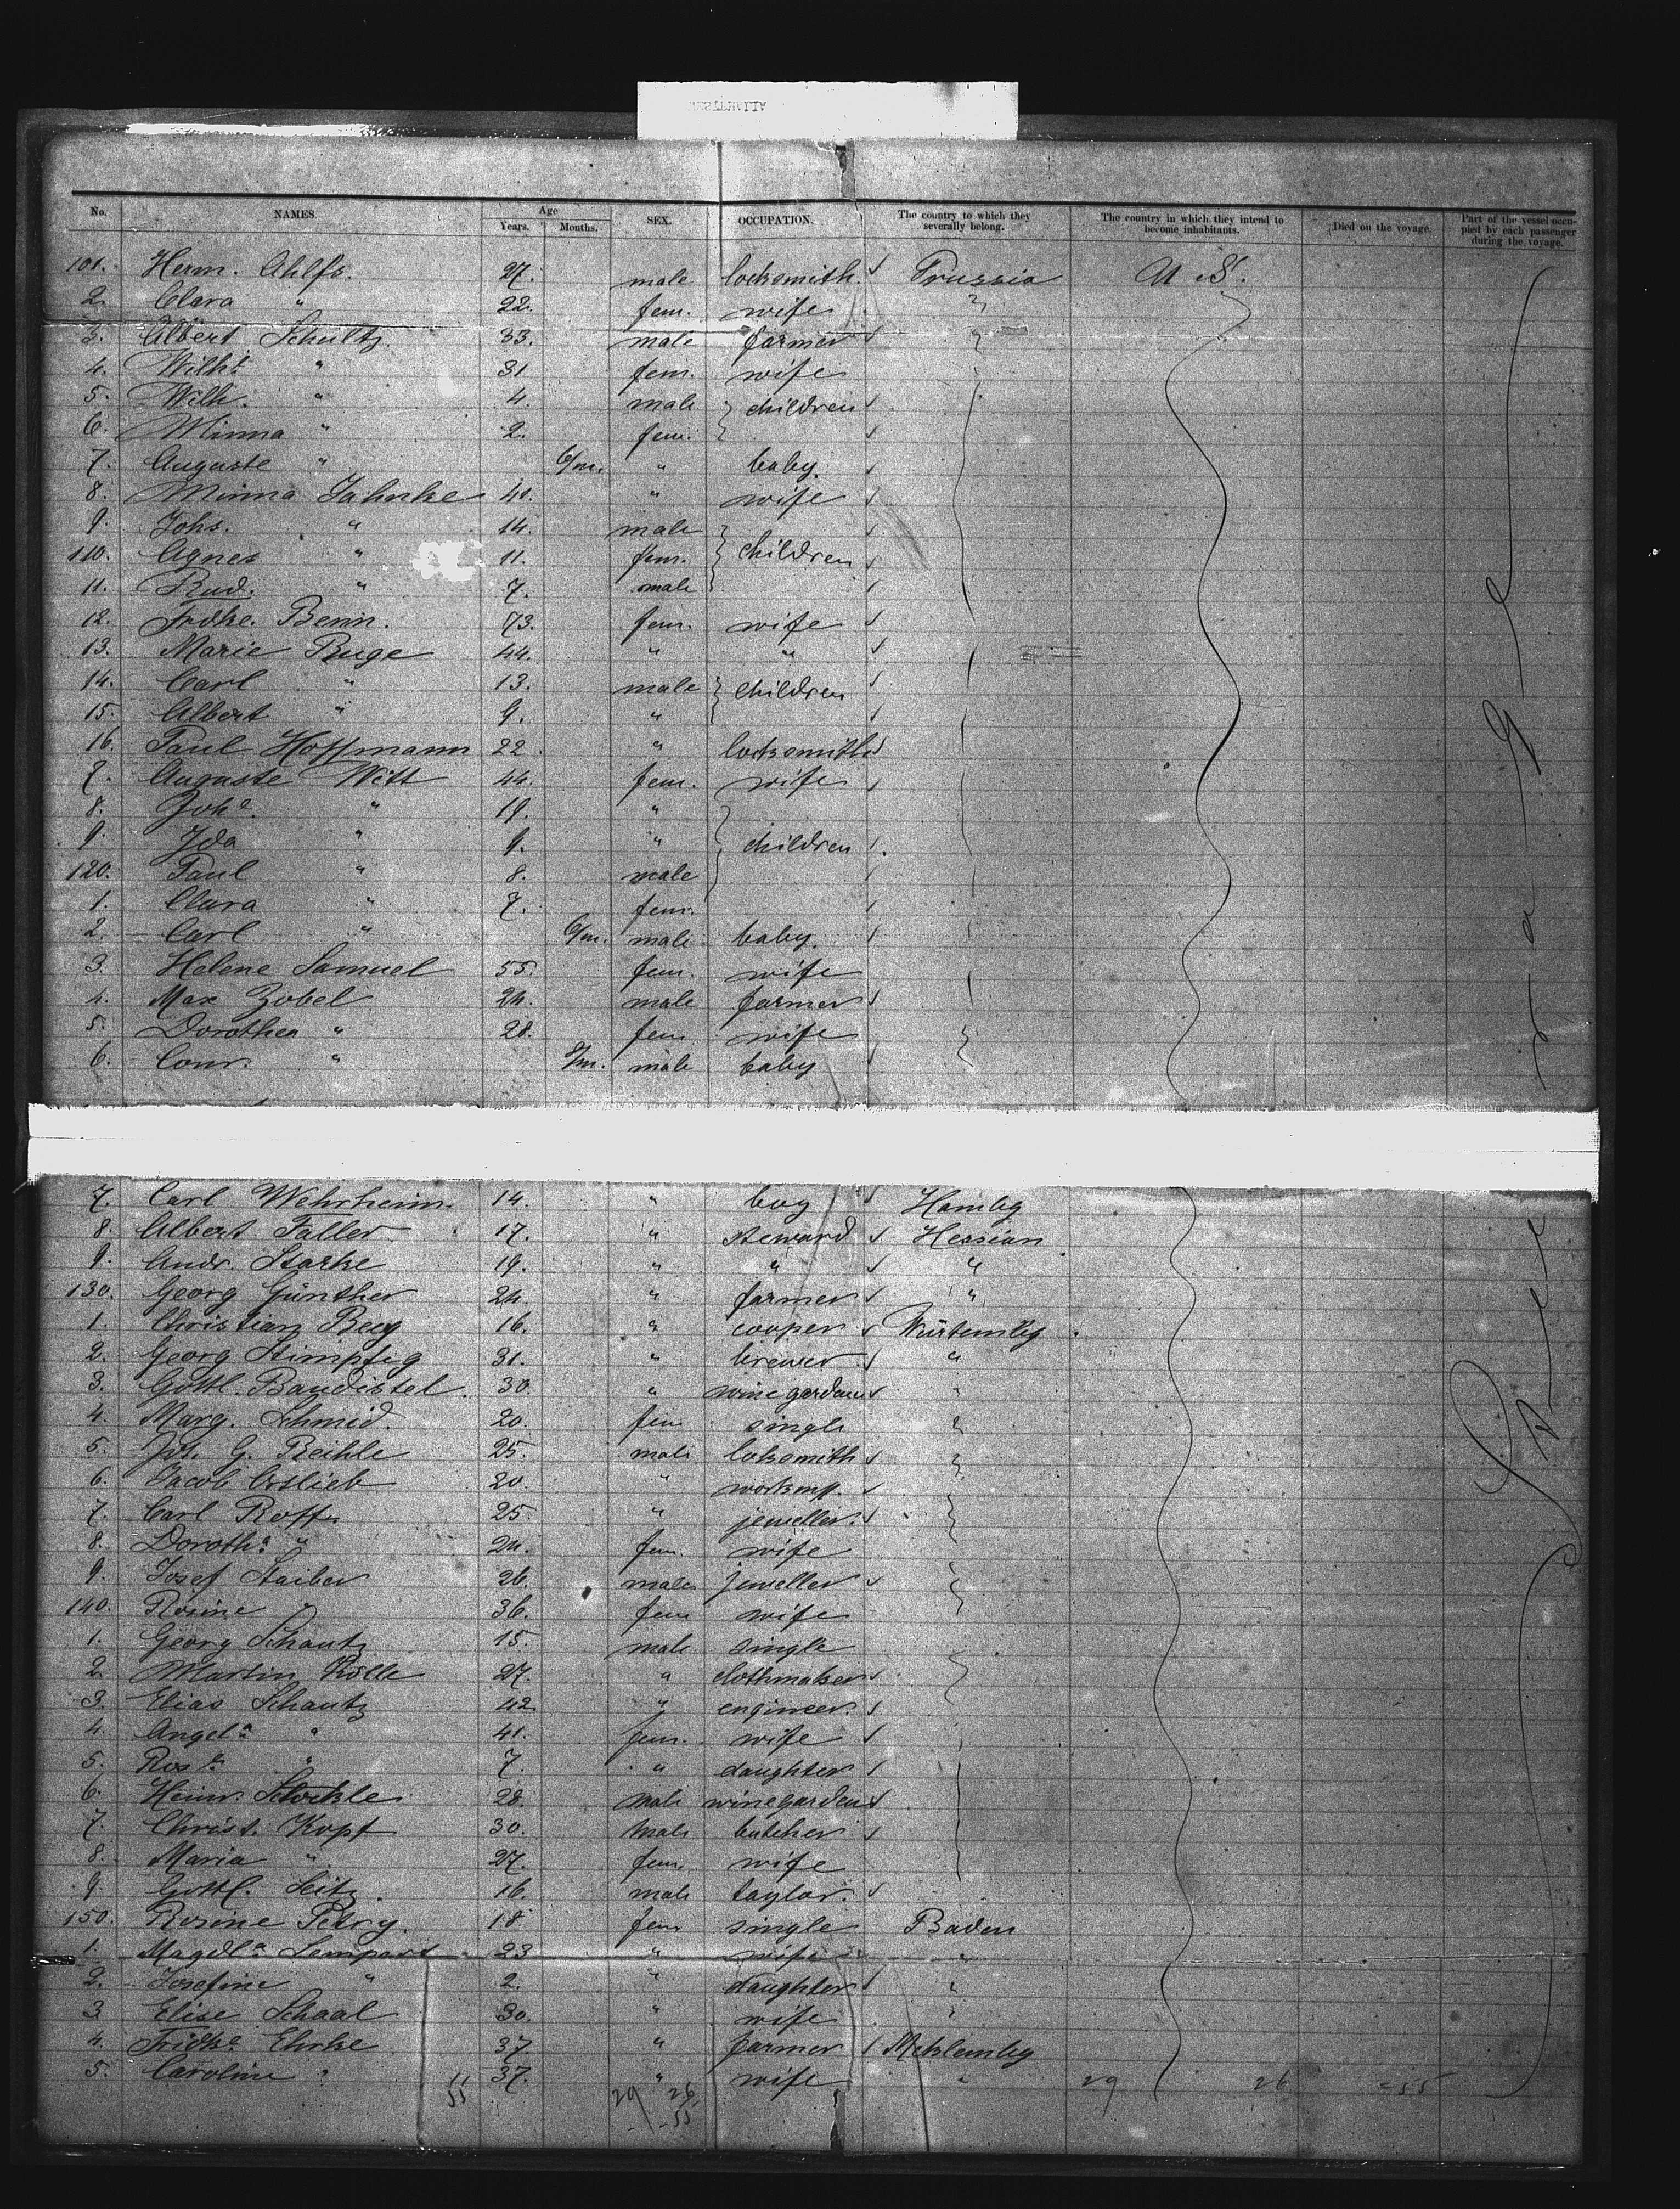 No. NAMES. Age Years. Months. SEX. OCCUPATION. The country to which they severally belong. The country in which they intend to become inhabitants. Died on the voyage. Part of the vessel occupied by each passenger during the voyage.
101. Herm. Ahlfs. 27. male locksmith. Prussia U. S.
2. Clara " 22. fem. wife "
3. Albert Schultz 33. male farmer
4. Wilh.e " 31 fem. wife
5. Wilh. " 4. male children
6. Minna " 2. fem.
7. Auguste " 6/m. " baby.
8. Minna Jahnke 40. " wife
9. Johs. " 14. male
110. Agnes " 11. fem. children
11. Rud. " 7. male
12. Frdke. Benn. 73. fem. wife
13. Marie Ruge 44. " "
14. Carl " 13. male children
15. Albert " 9. "
16. Paul Hoffmann 22. " locksmith
7. Auguste Witt 44. fem. wife
8. Joh.e " 19. "
9. Ida " 9. " children
120. Paul " 8. male
1. Clara " 7. fem.
2. Carl " 6/m. male baby.
3. Helene Samuel 55. fem. wife
4. Max Zobel 24. male farmer
5. Dorothea " 28. fem. wife
6. Conr. " /m. male baby
7. Carl Wehrheim. 14. " boy Hambg
8. Albert Faller 17. " steward Hessian
9. Andr. Starke 19. " " "
130. Georg Günther 24. " farmer "
1. Christian Beey 16. " cooper Würtembg
2. Georg Stimpfig 31. " brewer "
3. Gottl. Baudistel. 30. " winegarden "
4. Marg. Schmid. 20. fem single "
5. Joh. G. Reihle 25. male loksmith
6. Jacob Ostlieb 20. " workm.
7. Carl Roff. 25. " jeweller.
8. Doroth.a " 24. fem. wife
9. Josef Staiber 26. male jeweller
140. Rosine " 36. fem wife
1. Georg Schautz 15. male single
2. Martin Kölle 27. " clothmaker
3. Elias Schautz 42 " engineer.
4. Angel.a " 41. fem. wife
5. Ros.e " 7. " daughter
6. Heinr. Stöckle 28. male winegarden
7. Christ. Kopf 30. male butcher
8. Maria " 27. fem. wife
9. Gottl. Seitz. 16. male taylor.
150. Rosine Petry. 18 fem single Baden
1. Magdl.a Lempart 23 " wife "
2. Josefine " 2. " daughter "
3. Elise Schaal 30. " wife "
4. Fridke Ehrke 37. " farmer Meklembg
5. Caroline " 37. " wife " 29 26 =55
11 55 29 26
55